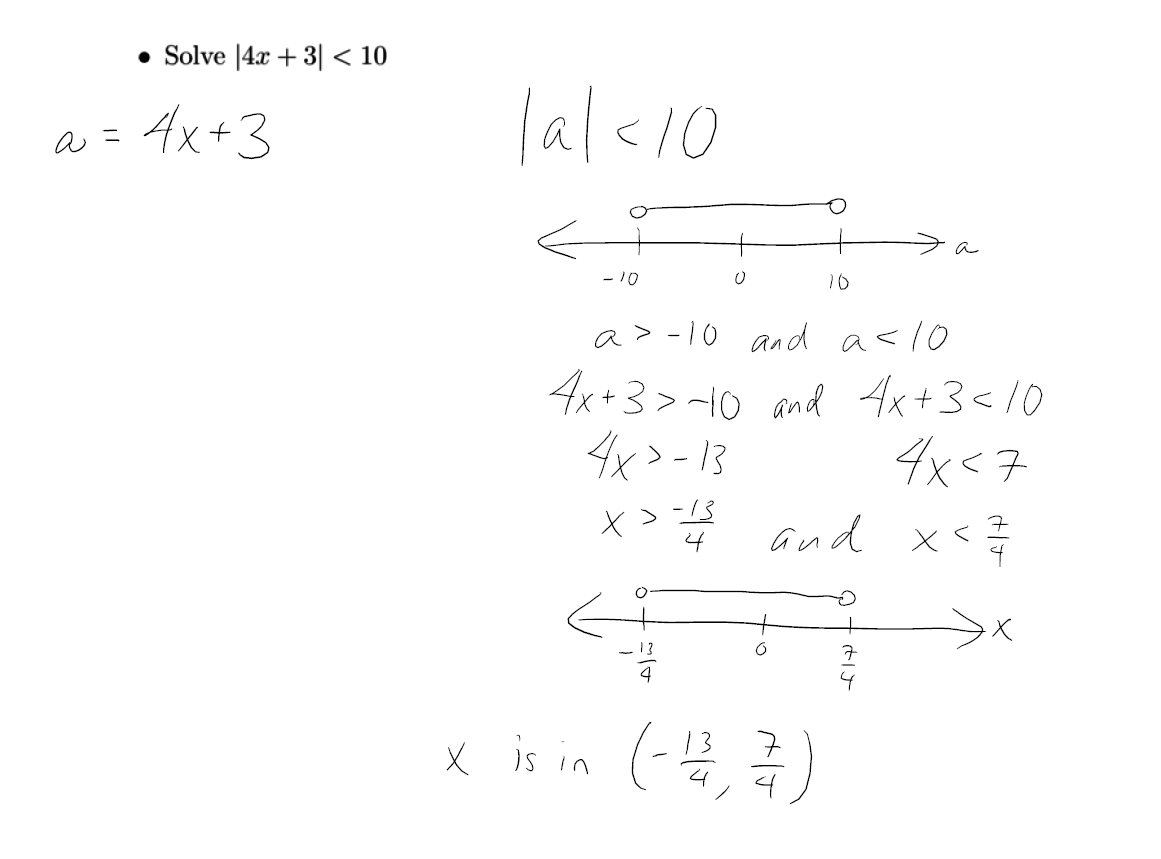 • Solve |4x + 3| < 10
a = 4x+3
|a| < 10
a
-10 0 10
a > -10 and a < 10
4x+3 > -10 and 4x+3 < 10
4x > -13 4x < 7
x > -13/4 and x < 7/4
x
-13/4 0 7/4
x is in (-13/4, 7/4)